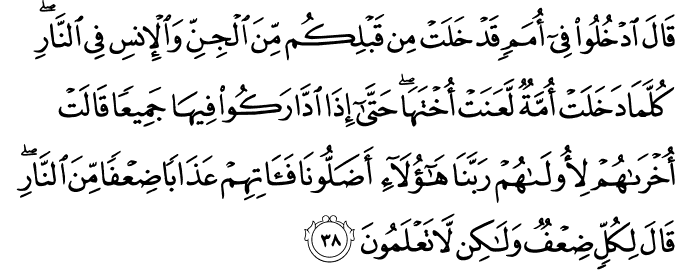 قَالَ ٱدۡخُلُواْ فِيٓ أُمَمٖ قَدۡ خَلَتۡ مِن قَبۡلِكُم مِّنَ ٱلۡجِنِّ وَٱلۡإِنسِ فِي ٱلنَّارِۖ
كُلَّمَا دَخَلَتۡ أُمَّةٞ لَّعَنَتۡ أُخۡتَهَاۖ حَتَّىٰٓ إِذَا ٱدَّارَكُواْ فِيهَا جَمِيعٗا قَالَتۡ
أُخۡرَىٰهُمۡ لِأُولَىٰهُمۡ رَبَّنَا هَٰٓؤُلَآءِ أَضَلُّونَا فَـَٔاتِهِمۡ عَذَابٗا ضِعۡفٗا مِّنَ ٱلنَّارِۖ
قَالَ لِكُلّٖ ضِعۡفٞ وَلَٰكِن لَّا تَعۡلَمُونَ ٣٨